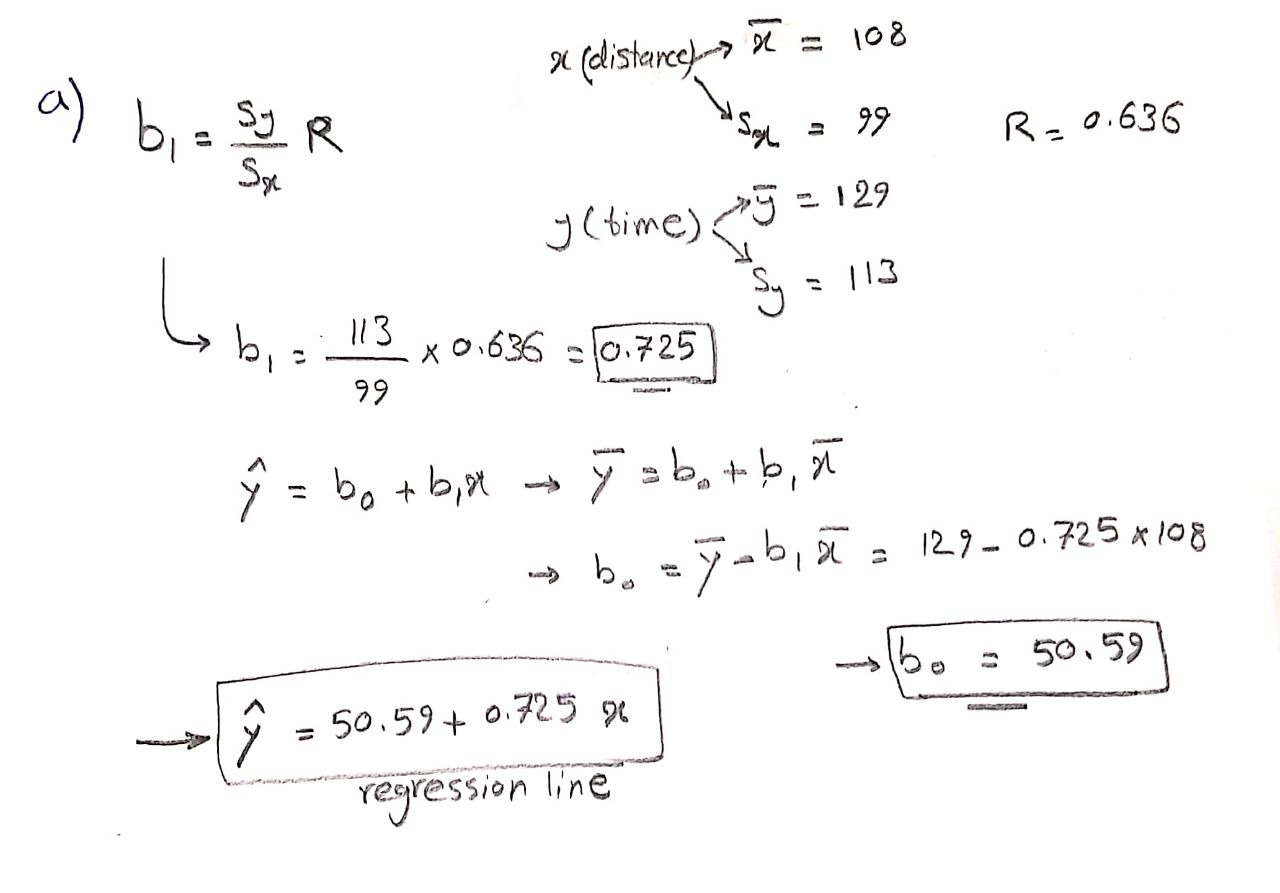 a) b₁ = Sy/Sx R
x (distance) → x̄ = 108
↘ Sx = 99
R = 0.636
y (time) ↗ ȳ = 129
↘ Sy = 113
↳ b₁ = 113/99 × 0.636 = 0.725
ŷ = b₀ + b₁x → ȳ = b₀ + b₁x̄
→ b₀ = ȳ - b₁x̄ = 129 - 0.725 × 108
→ b₀ = 50.59
→ ŷ = 50.59 + 0.725 x
regression line